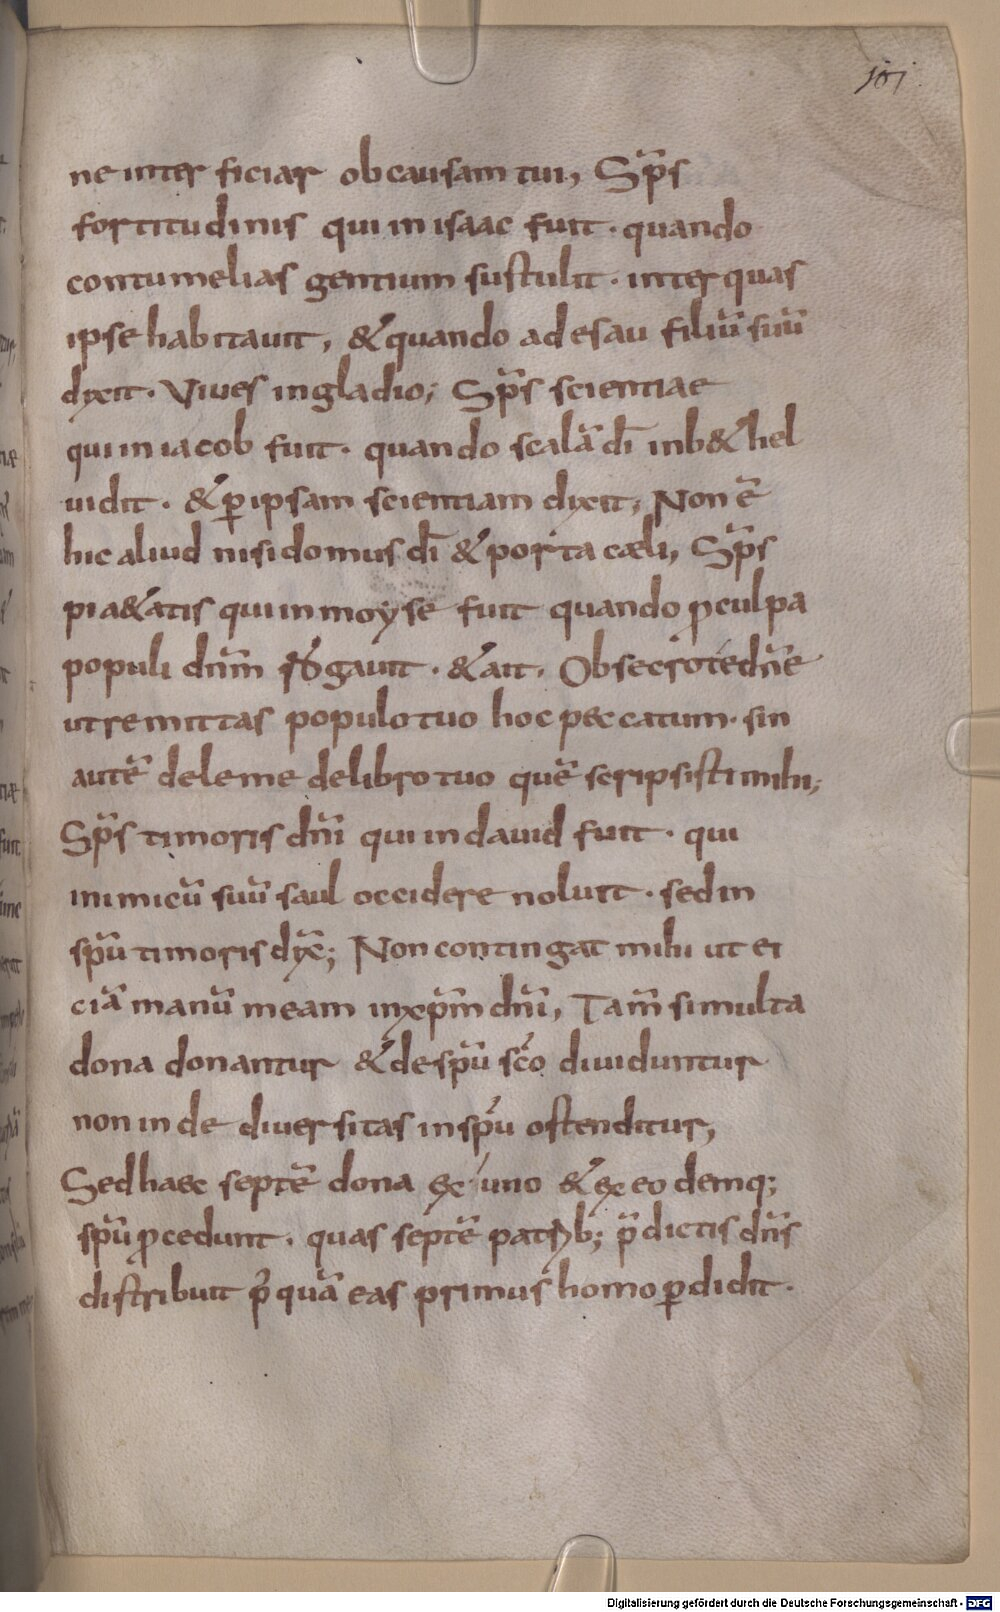 101
ne inter ficiar ob causam tui, Sp̄s
fortitudinis qui in isaac fuit · quando
contumelias gentium sustulit · inter quas
ipse habitauit, & quando ad esau filiū suū
dixit · Viues in gladio; Sp̄s scientiae
qui in iacob fuit · quando scalā dī in b&hel
uidit · & ꝑ ipsam scientiam dixit, Non ē
hic aliud nisi domus dī & porta cæli, Sp̄s
pi a&atis qui in moyse fuit quando ꝓ culpa
populi dn̄m rogauit · & ait · Obsecro te dn̄e
ut remittas populo tuo hoc peccatum · sin
autē dele me de libro tuo quē scripsisti mihi;
Sp̄s timoris dn̄i qui in dauid fuit · qui
inimicū suū saul occidere noluit · sed in
sp̄u timoris dix̄; Non contingat mihi ut ei
ciā manū meam in xp̄m dn̄i, Tam̄ si multa
dona donantur & de sp̄u sc̄o diuiduntur
non in de diuersitas in sp̄u ostenditur,
Sed haec septē dona ex uno & ex eo demq;
sp̄u ꝓcedunt · quas septē patrib; p̄dictis dn̄s
distribuit p̄ quā eas primus homo ꝑdidit ·
Digitalisierung gefördert durch die Deutsche Forschungsgemeinschaft - DFG